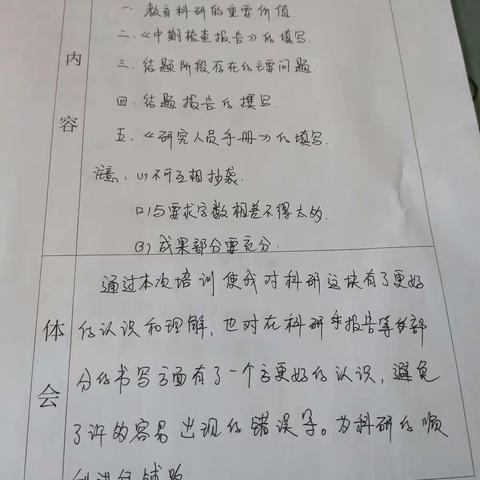 内容
一. 教育科研的重要价值.
二.《中期检查报告》的填写.
三. 结题阶段存在的主要问题.
四. 结题报告的撰写.
五、《研究人员手册》的填写.
注意: (1) 不可互相抄袭.
(2) 与要求字数相差不得太多.
(3) 成果部分要充分.
体会
通过本次培训使我对科研这块有了更好
的认识和理解, 也对在科研手报告等各部
分的书写方面有了一个更好的认识, 避免
了许多容易出现的错误等。为科研的顺
利进行铺路